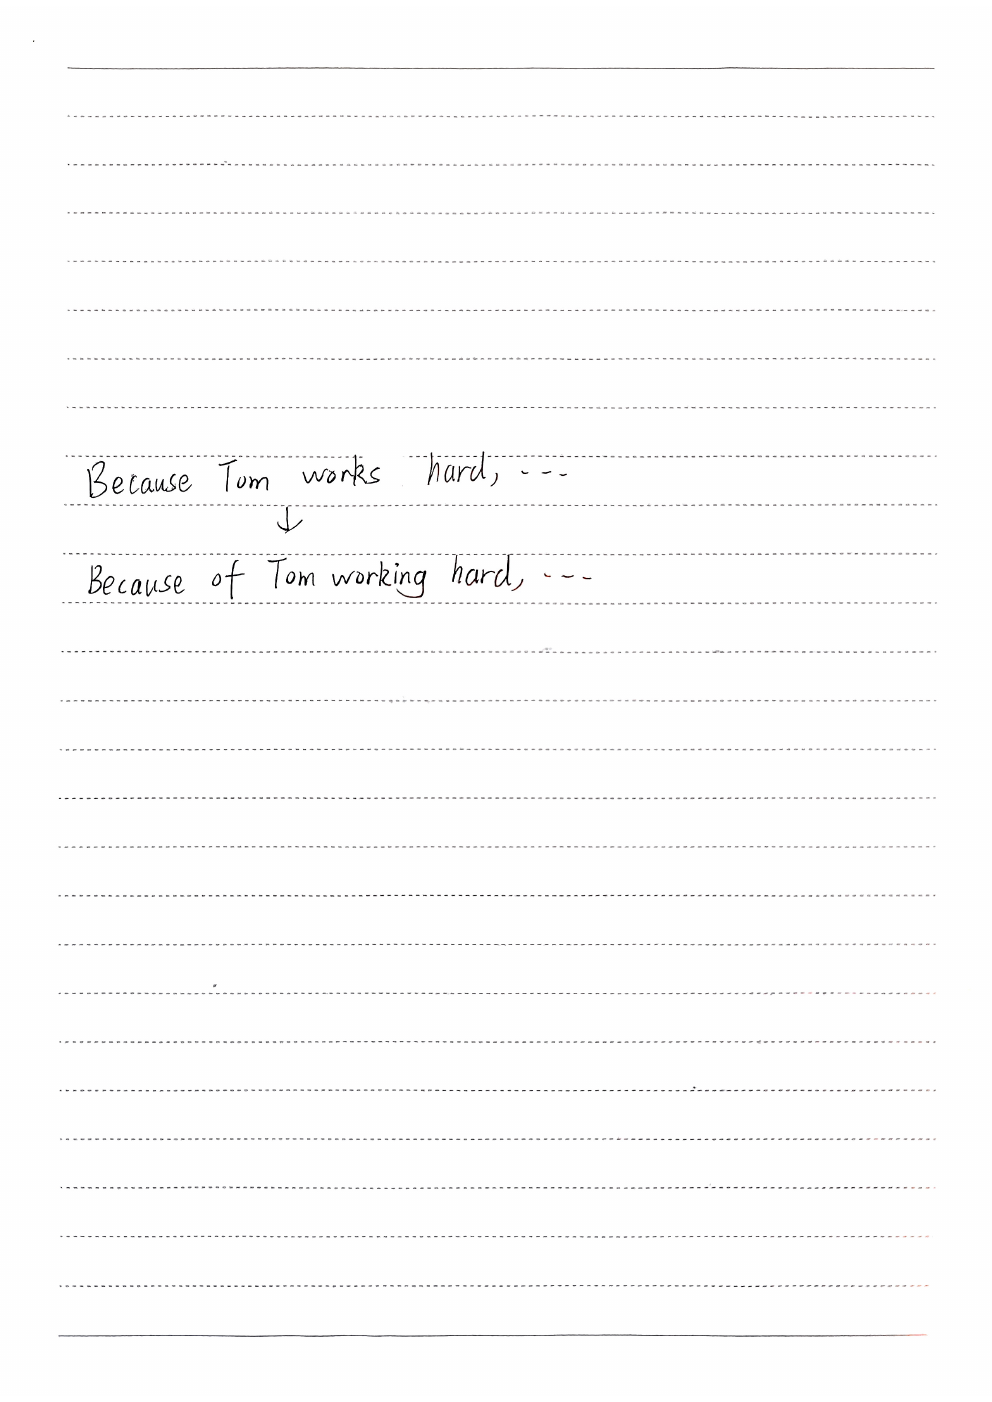 Because Tom works hard, ---
↓
Because of Tom working hard, ---